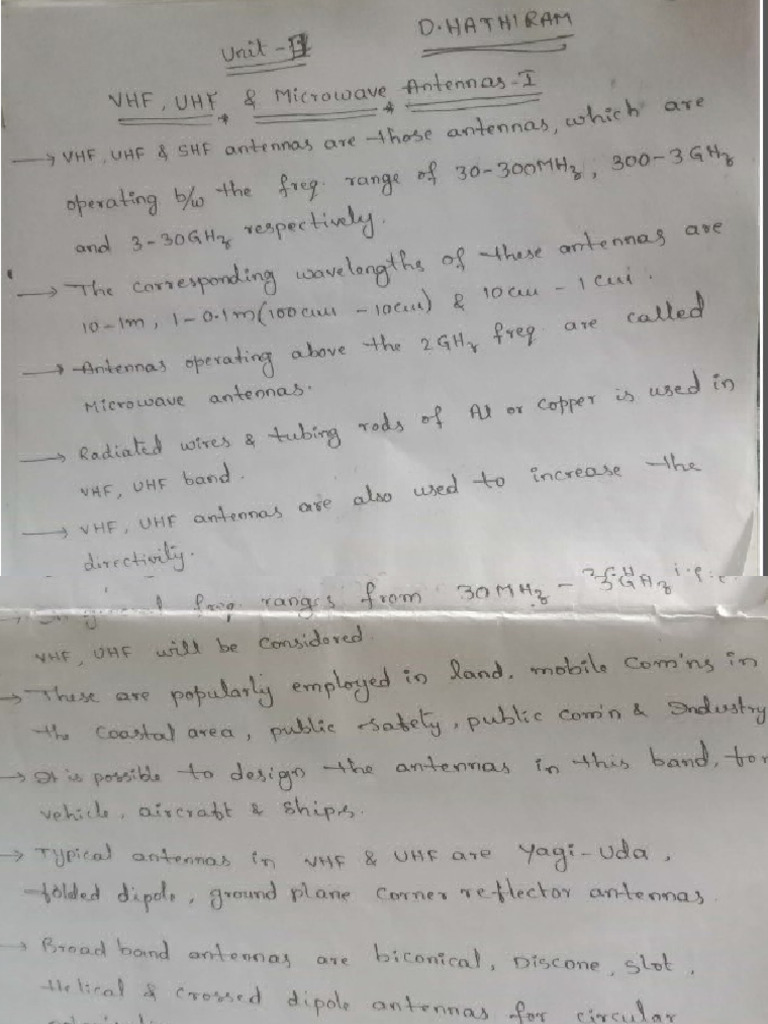 D.HATHIRAM
Unit - II
VHF, UHF & Microwave Antennas-I
→ VHF, UHF & SHF antennas are those antennas, which are
operating b/w the freq. range of 30-300MHz, 300-3GHz
and 3-30GHz respectively.
→ The corresponding wavelengths of these antennas are
10-1m, 1-0.1m(100cm - 10cm) & 10cm - 1cm.
→ Antennas operating above the 2GHz freq. are called
Microwave antennas.
→ Radiated wires & tubing rods of Al or copper is used in
VHF, UHF band.
→ VHF, UHF antennas are also used to increase the
directivity.
freq. ranges from 30MHz - 3GHz i.e.
VHF, UHF will be considered.
→ These are popularly employed in land, mobile com'ns in
the coastal area, public safety, public com'n & Industry
→ It is possible to design the antennas in this band, for
vehicle, aircraft & ships.
→ Typical antennas in VHF & UHF are Yagi-Uda,
folded dipole, ground plane corner reflector antennas.
→ Broad band antennas are biconical, Discone, slot,
Helical & crossed dipole antennas for circular